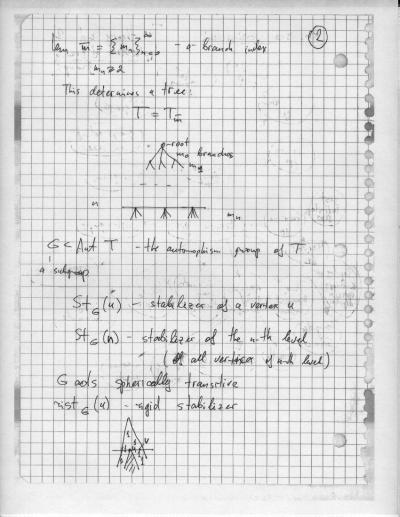 2
m̄ = {mₙ}ₙ₌₀^∞ - a branch index
mₙ ≥ 2
This determines a tree:
T = T_m̄
root
m₀ branches
m₁
n
mₙ
G < Aut T - the automorphism group of T
a subgroup
St_G(u) - stabilizer of a vertex u
St_G(n) - stabilizer of the n-th level
(of all vertices of n-th level)
G acts spherically transitive
rist_G(u) - rigid stabilizer
u